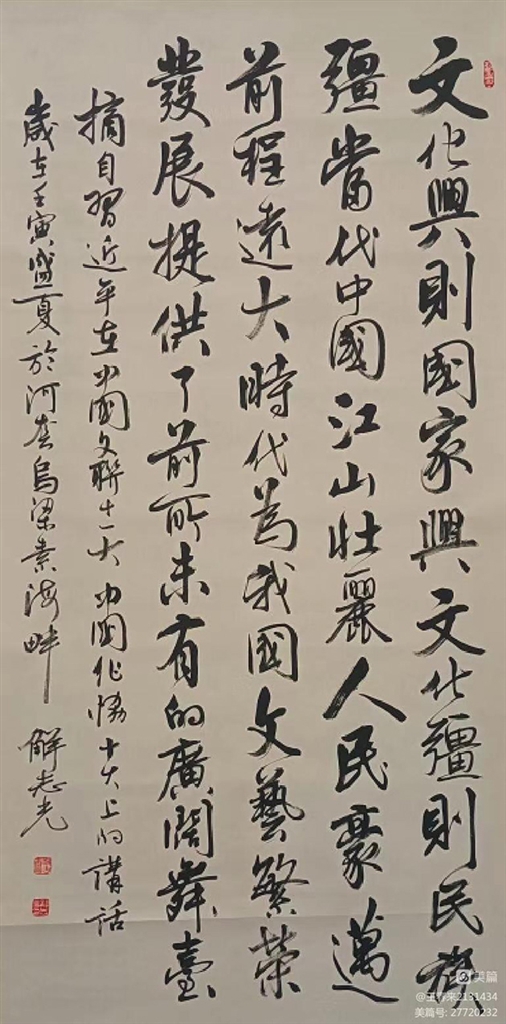 文化興則國家興文化疆則民族
疆當代中國江山壯麗人民豪邁
前程遠大時代為我國文藝繁榮
發展提供了前所未有的廣闊舞臺
摘自習近平在中國文聯十一大中國作協十大上的講話
歲在壬寅盛夏於河套烏梁素海畔 解志光
美篇
@王春來2131434
美篇号: 27720232